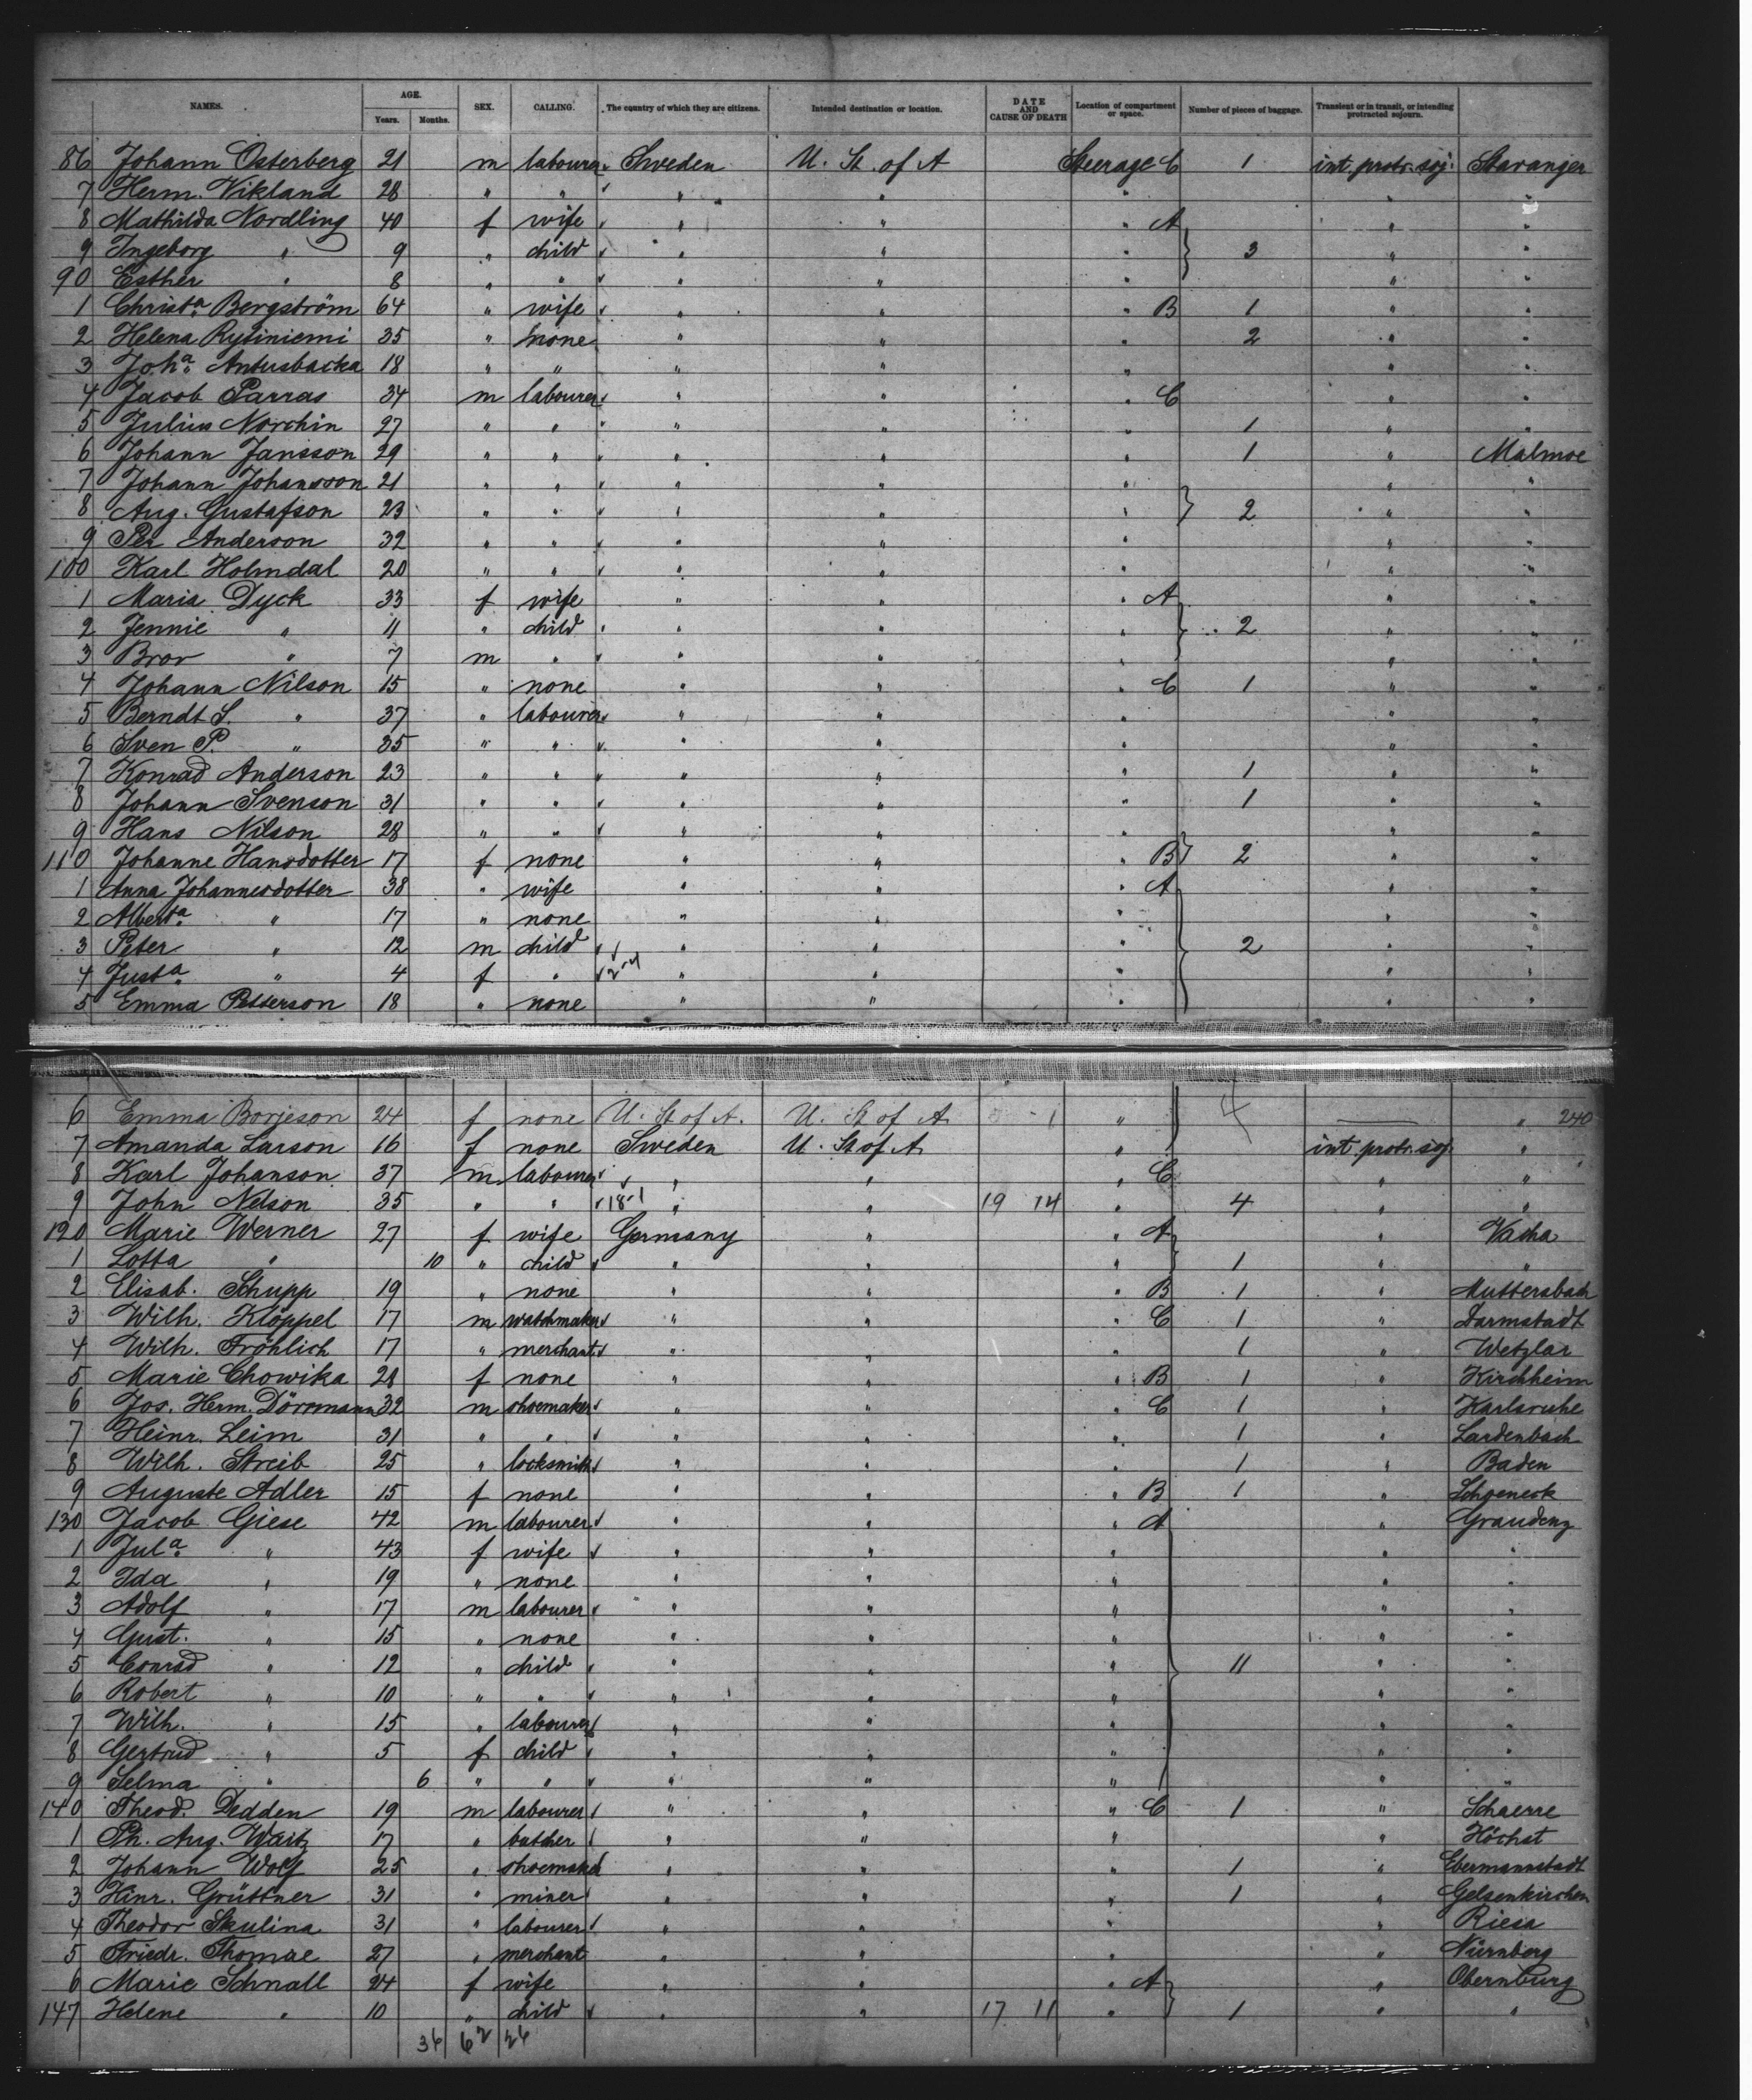 NAMES. AGE. Years. Months. SEX. CALLING. The country of which they are citizens. Intended destination or location. DATE AND CAUSE OF DEATH Location of compartment or space. Number of pieces of baggage. Transient or in transit, or intending protracted sojourn.
86 Johann Osterberg 21 m labourer Sweden U. St. of A Steerage C 1 int. protr. soj. Stavanger
7 Herm. Vikland 28 " " " " " " "
8 Mathilda Nordling 40 f wife " " " A " "
9 Ingeborg " 9 " child " " " 3 " "
90 Esther " 8 " " " " " " "
1 Christa Bergström 64 " wife " " " B 1 " "
2 Helena Rytiniemi 35 " none " " " 2 " "
3 Joha Antusbacka 18 " " " " " " "
4 Jacob Parras 34 m labourer " " " C " "
5 Julius Norchin 27 " " " " " 1 " "
6 Johann Jansson 29 " " " " " 1 " Malmoe
7 Johann Johansson 21 " " " " " " "
8 Aug. Gustafson 23 " " " " " 2 " "
9 Per Anderson 32 " " " " " " "
100 Karl Holmdal 20 " " " " " " "
1 Maria Dyck 33 f wife " " " A " "
2 Jennie " 11 " child " " " 2 " "
3 Bror " 7 m " " " " " "
4 Johann Nilson 15 " none " " " C 1 " "
5 Berndt S. " 37 " labourer " " " " "
6 Sven P. " 35 " " " " " " "
7 Konrad Anderson 23 " " " " " 1 " "
8 Johann Svenson 31 " " " " " 1 " "
9 Hans Nilson 28 " " " " " " "
110 Johanne Hansdotter 17 f none " " " B 2 " "
1 Anna Johannesdotter 38 " wife " " " A " "
2 Alberta " 17 " none " " " " "
3 Peter " 12 m child " " " 2 " "
4 Justa " 4 f " " " " " "
5 Emma Petterson 18 " none " " " " "
6 Emma Borjeson 24 f none U. St of A. U. St of A 1 " 4 " 240
7 Amanda Larson 16 f none Sweden U. St of A " int protr. soj. "
8 Karl Johanson 37 m labourer " " " C " "
9 John Nelson 35 " " 18-1 " " 19 14 " 4 " "
120 Marie Werner 27 f wife Germany " " A " Vacha
1 Lotta " 10 " child " " " 1 " "
2 Elisab. Schupp 19 " none " " " B 1 " Muttersbach
3 Wilh. Klöppel 17 m watchmaker " " " C 1 " Darmstadt
4 Wilh. Fröhlich 17 " merchant " " " 1 " Wetzlar
5 Marie Chowika 28 f none " " " B 1 " Kirchheim
6 Jos. Herm. Dörrmann 32 m shoemaker " " " C 1 " Karlsruhe
7 Heinr. Leim 31 " " " " " 1 " Lardenbach
8 Wilh. Streib 25 " locksmith " " " 1 " Baden
9 Auguste Adler 15 f none " " " B 1 " Schoeneck
130 Jacob Giese 42 m labourer " " " A " Graudenz
1 Jula " 43 f wife " " " " "
2 Ida " 19 " none " " " " "
3 Adolf " 17 m labourer " " " " "
4 Gust. " 15 " none " " " " "
5 Conrad " 12 " child " " " 11 " "
6 Robert " 10 " " " " " " "
7 Wilh. " 15 " labourer " " " " "
8 Gertrud " 5 f child " " " " "
9 Selma " 6 " " " " " " "
140 Theod. Dedden 19 m labourer " " " C 1 " Schaerre
1 Ph. Aug. Waitz 17 " butcher " " " " Höchst
2 Johann Wolf 25 " shoemaker " " " 1 " Ebermannstadt
3 Hinr. Grüttner 31 " miner " " " 1 " Gelsenkirchen
4 Theodor Skulina 31 " labourer " " " " Riesa
5 Friedr. Thomae 27 " merchant " " " " Nürnberg
6 Marie Schnall 24 f wife " " " A " Obernburg
147 Helene " 10 " child " " 17 11 " 1 " "
36 62 26